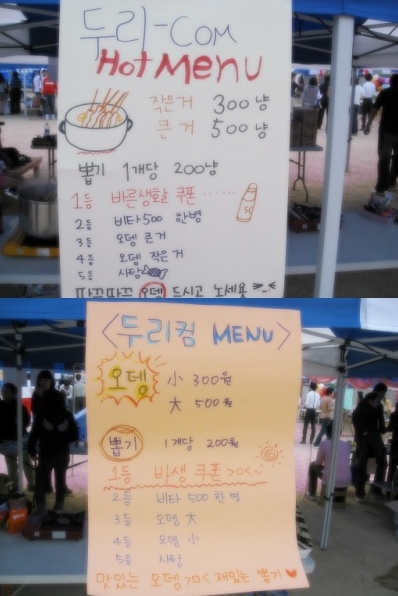 두리-COM
Hot Menu
작은거 300냥
큰거 500냥
뽑기 1개당 200냥
1등 바른생활 쿠폰……
2등 비타500 한병
3등 오뎅 큰거
4등 오뎅 작은거
5등 사탕
따끈따끈 오뎅 드시고 노세욧
<두리컴 MENU>
오뎅 小 300원
大 500원
뽑기 1개당 200원
1등 바생 쿠폰 >o<~
2등 비타 500 한병
3등 오뎅 大
4등 오뎅 小
5등 사탕
맛있는 오뎅 >ㅁ< 재밌는 뽑기 ♥